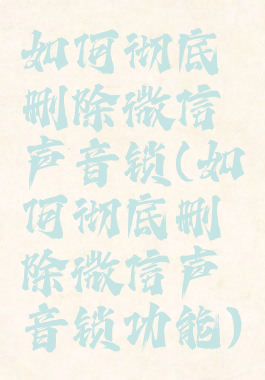 如何彻底
删除微信
声音锁(如
何彻底删
除微信声
音锁功能)